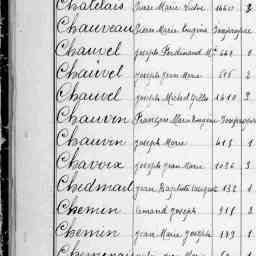 Chatelais Pierre Marie Victor 1460 2
Chauveau Pierre Marie Eugène Impropre
Chauvel Joseph Ferdinand Mie 669
Chauvel Joseph Jean Marie 2
Chauvel Joseph Michel Gilles 1410 3
Chauvin François Marie Eugène Impropre
Chauvin Joseph Marie 415 1
Chavoix Joseph Jean Marie 1036 3
Chedmail Jean Baptiste 132 1
Chemin Armand Joseph 918 2
Chemin Jean Marie Joseph 1